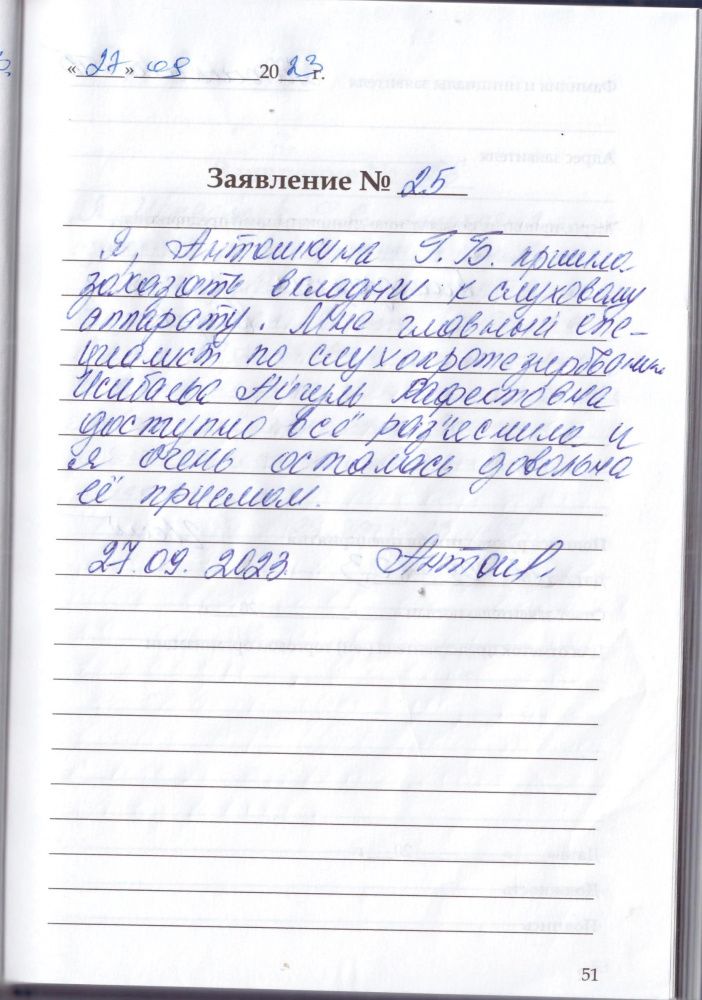 « 27 » 09 2023 г.
Заявление № 25
Я, Антошкина Г.Б. пришла
заказать вкладыш к слуховому
аппарату. Мне главный спе-
циалист по слухопротезированию
Айгуль
доступно всё раз'яснила и
я очень осталась довольна
её приемом.
27.09.2023.
51